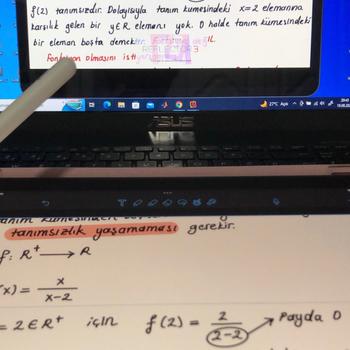 f(2) tanımsızdır. Dolayısıyla tanım kümesindeki x=2 elemanına
karşılık gelen bir y∈R elemanı yok. O halde tanım kümesindeki
bir eleman boşta demek
REFLECTOR 3
Fonksiyon olmasını
27°C Açık
20:43
ASUS
tanımsızlık yaşamaması gerekir.
f: R⁺ → R
(x) = x/(x-2)
= 2 ∈ R⁺ için f(2) = 2/(2-2) → Payda 0